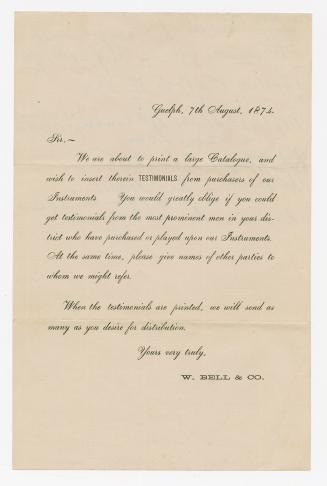 Guelph, 7th August, 1874.
Sir,—
We are about to print a large Catalogue, and
wish to insert therein TESTIMONIALS from purchasers of our
Instruments You would greatly oblige if you could
get testimonials from the most prominent men in your dis-
trict who have purchased or played upon our Instruments.
At the same time, please give names of other parties to
whom we might refer.
When the testimonials are printed, we will send as
many as you desire for distribution.
Yours very truly,
W. BELL & CO.